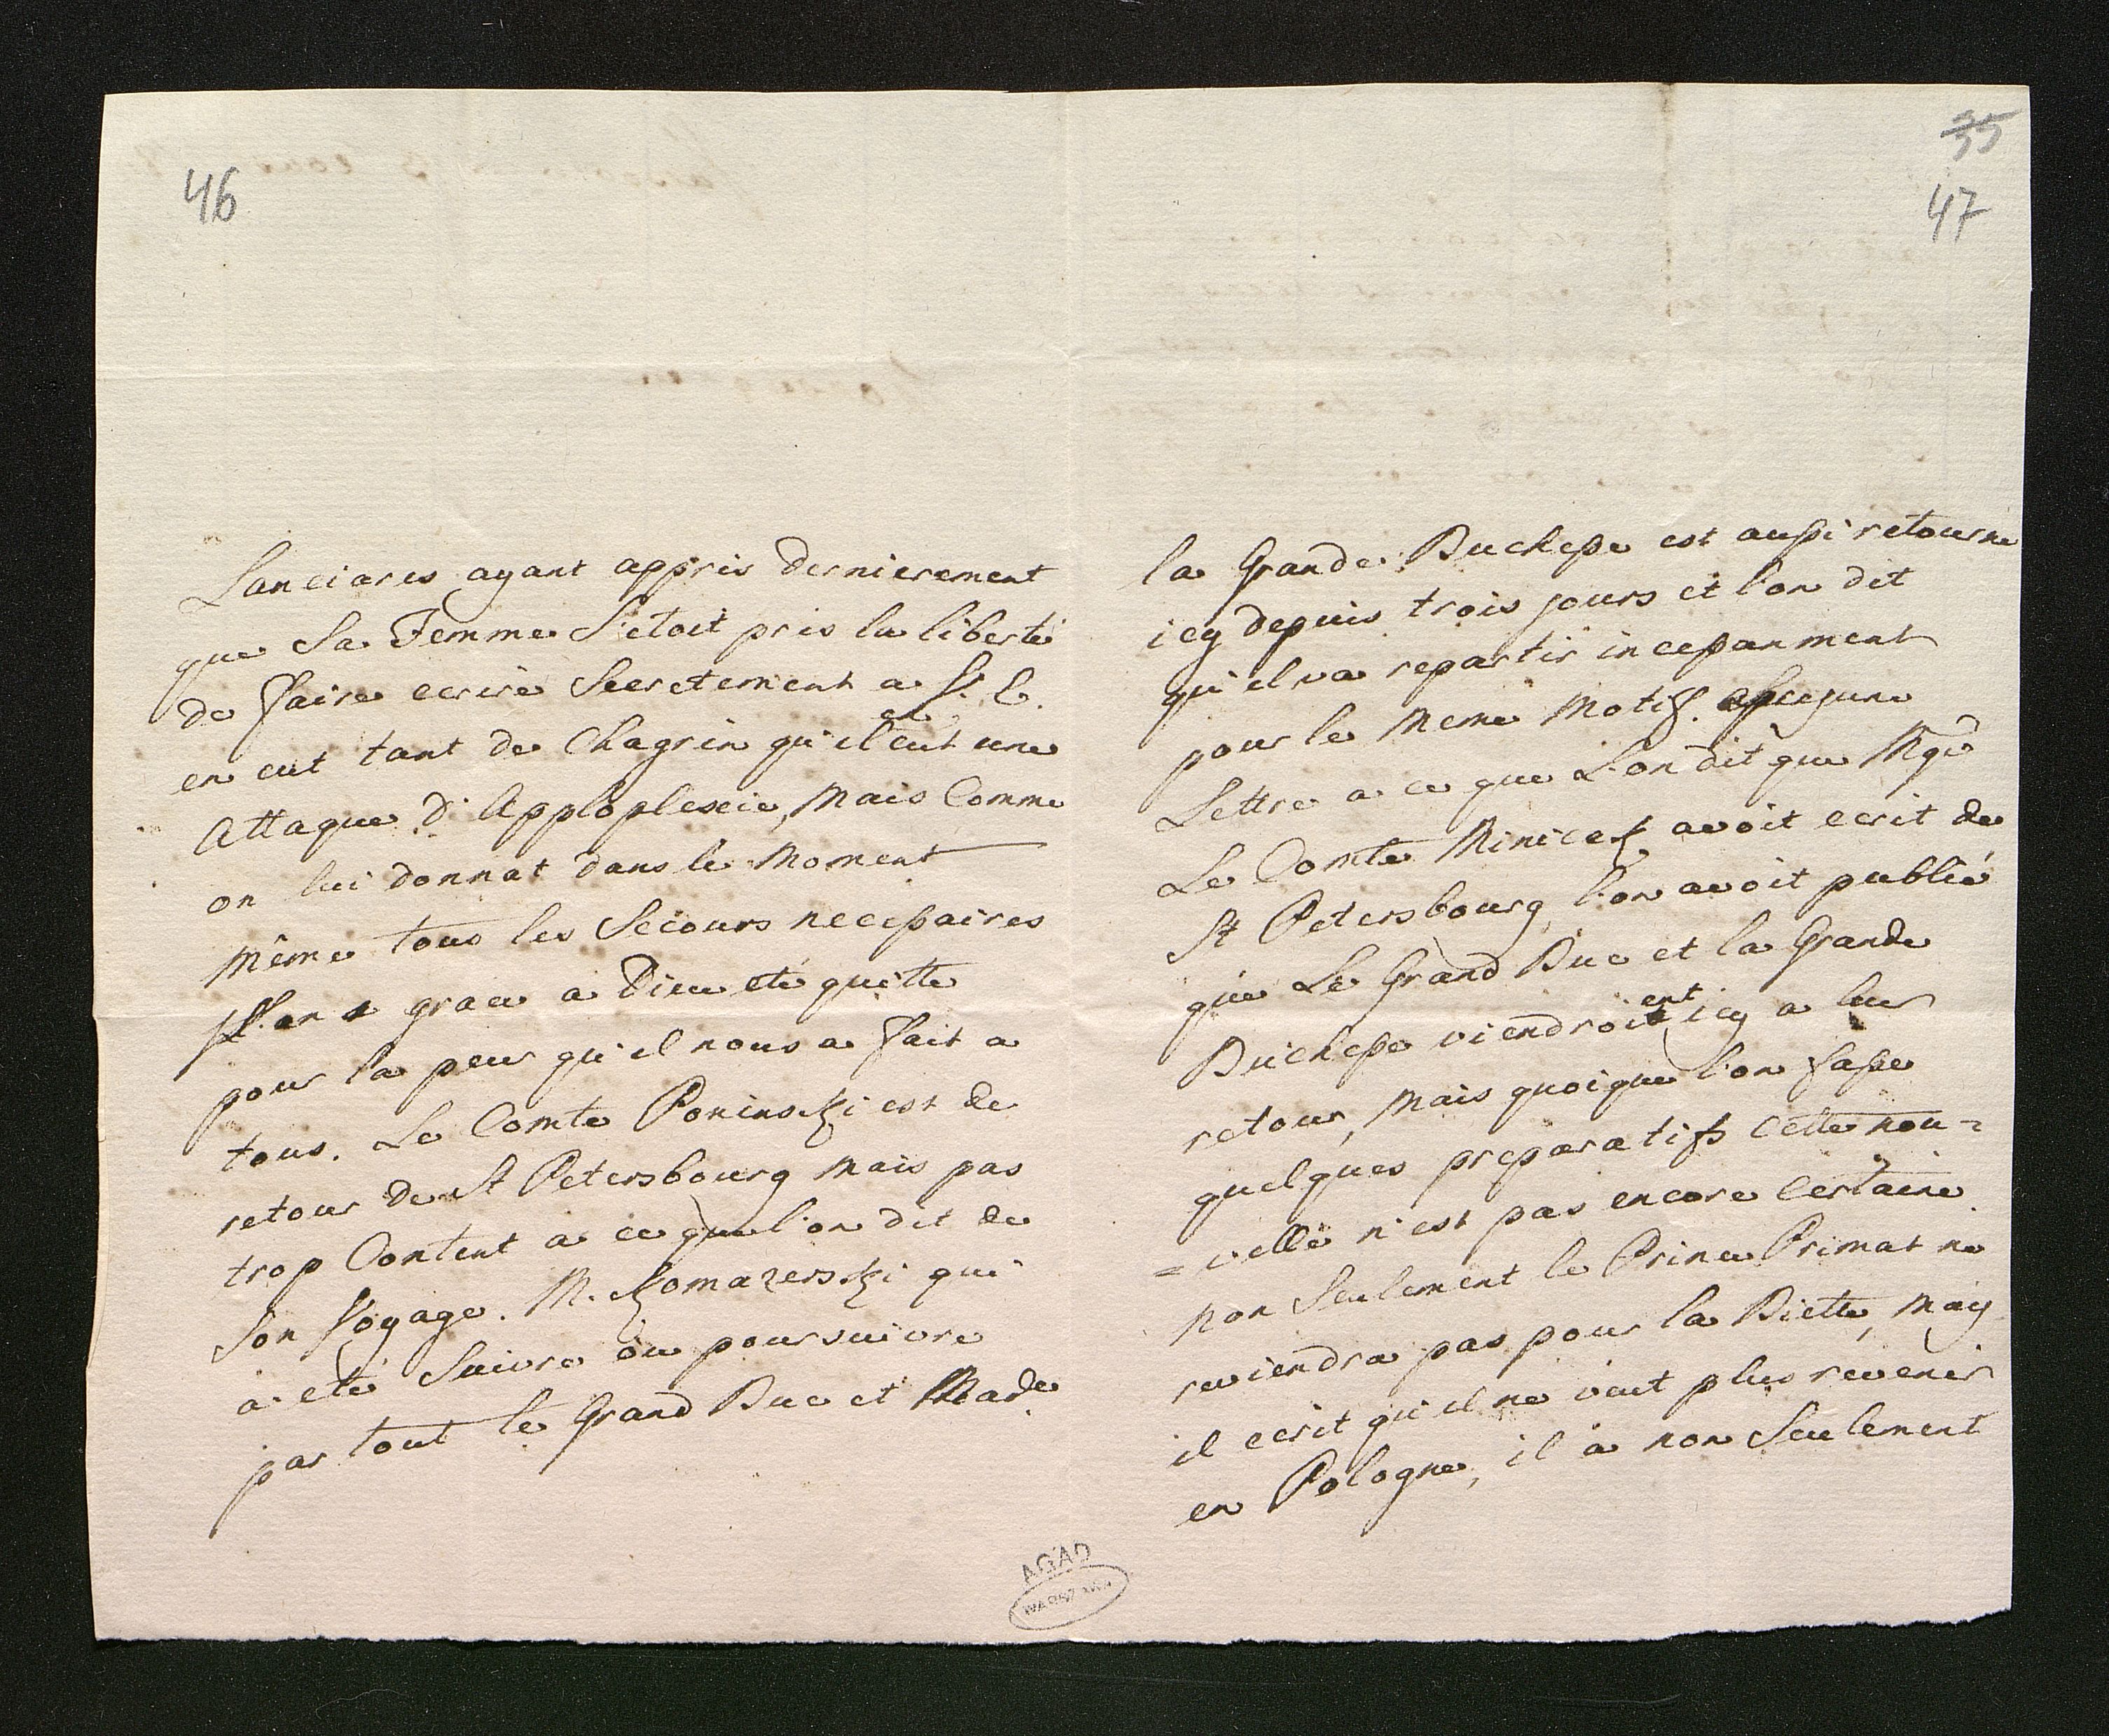 46
Lanciares ayant appris dernierement
que Sa Femme S'etoit pris la liberté
de faire ecrire Secretement a V. E.
en eut tant de Chagrin qu'il en eut une
Attaque d'Applopleseie, Mais Comme
on lui donnat dans le Moment
Même tous les Secours necessaires
grace a Dieu eté quitte
pour la peur qu'il nous a fait a
tous. Le Comte Poninski est de
retour de St Petersbourg Mais pas
trop Content a ce que l'on dit de
Son Voyage. M. Komazerski qui
a eté Suivre ou poursuivre
par tout le Grand Duc et Made
35
47
la Grande Duchesse est aussi retourne
icy depuis trois jours et l'on dit
qu'il va repartir incessanment
pour le Meme Motif.
Lettre a ce que L'on dit que Mgr
Le Comte avoit ecrit de
St Petersbourg l'on avoit publié
que Le Grand Duc et la Grande
Duchesse viendroient icy a leur
retour, Mais quoique l'on fasse
quelques preparatifs Cette nou=
=velle n'est pas encore Certaine
non Seulement le Prince Primat ne
reviendra pas pour la Diette, May
il ecrit qu'il ne veut plus revenir
en Pologne, il a non Seulement
AGAD
WARSZAWA